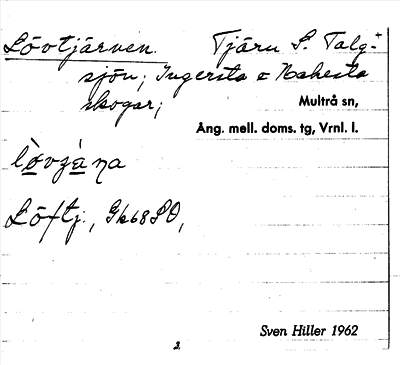 Lövtjärnen. Tjärn S. Talg-
sjön; Ingersta o Nahesta
skogar;
Multrå sn,
Ång. mell. doms. tg, Vrnl. l.
lòvzàna
Löftj., Gk68SO,
Sven Hiller 1962
2